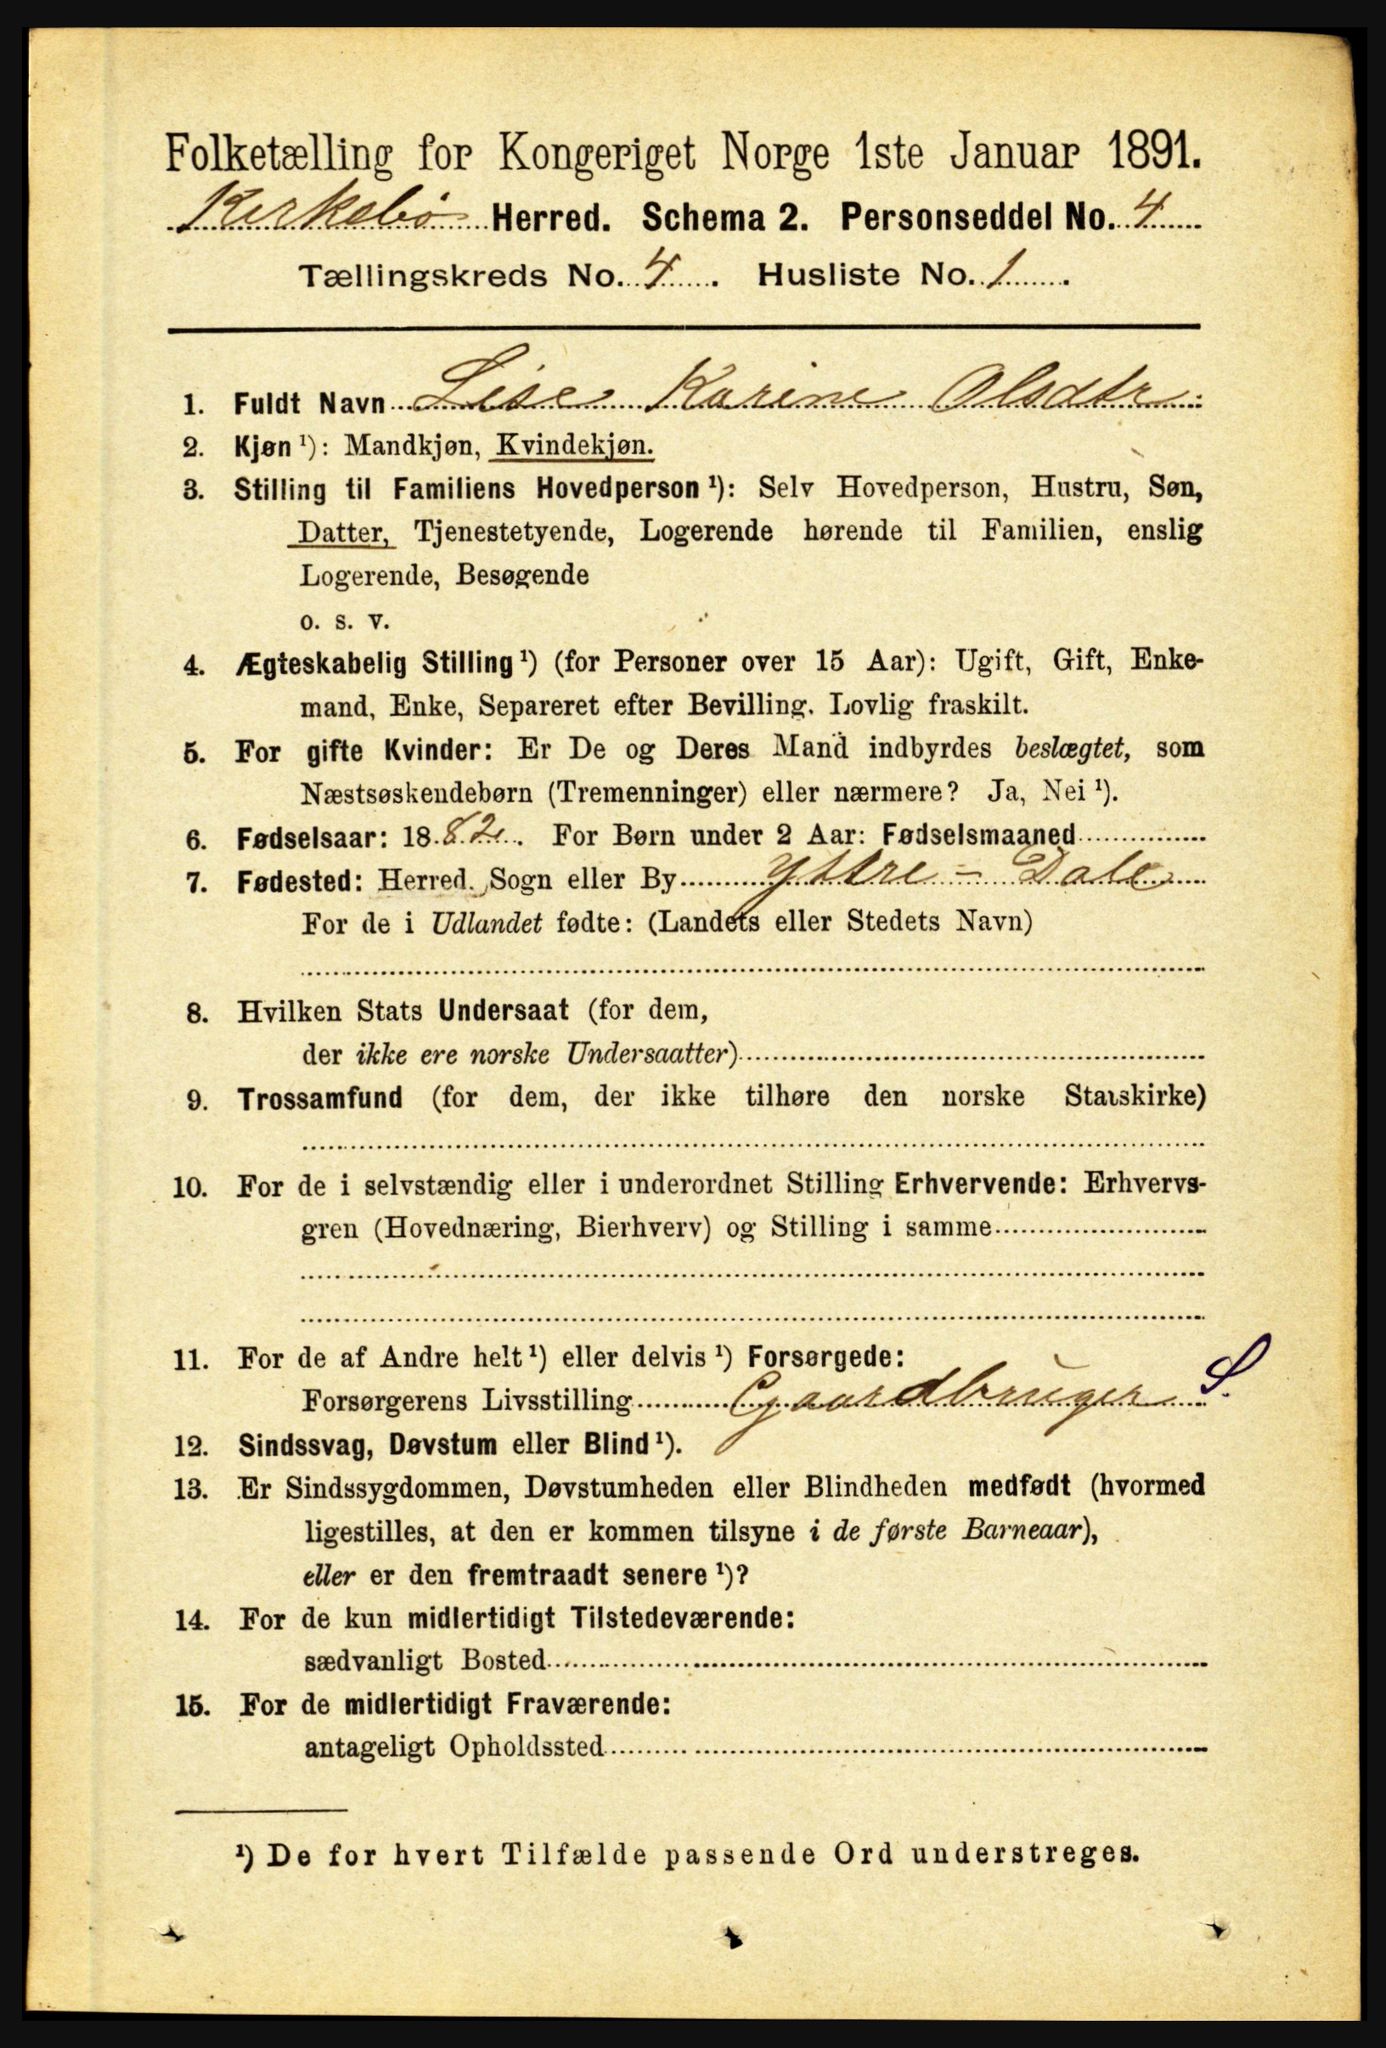 Folketælling for Kongeriget Norge 1ste Januar 1891.
Kirkebø Herred. Schema 2. Personseddel No. 4
Tællingskreds No. 4. Husliste No. 1.
1. Fuldt Navn Lise Karine Olsdtr
2. Kjøn ¹): Mandkjøn, Kvindekjøn.
3. Stilling til Familiens Hovedperson ¹): Selv Hovedperson, Hustru, Søn,
Datter, Tjenestetyende, Logerende hørende til Familien, enslig
Logerende, Besøgende
o. s. v.
4. Ægteskabelig Stilling ¹) (for Personer over 15 Aar): Ugift, Gift, Enke-
mand, Enke, Separeret efter Bevilling. Lovlig fraskilt.
5. For gifte Kvinder: Er De og Deres Mand indbyrdes beslægtet, som
Næstsøskendebørn (Tremenninger) eller nærmere? Ja, Nei ¹).
6. Fødselsaar: 1882. For Børn under 2 Aar: Fødselsmaaned
7. Fødested: Herred. Sogn eller By Yttre - Dale
For de i Udlandet fødte: (Landets eller Stedets Navn)
8. Hvilken Stats Undersaat (for dem,
der ikke ere norske Undersaatter)
9. Trossamfund (for dem, der ikke tilhøre den norske Statskirke)
10. For de i selvstændig eller i underordnet Stilling Erhvervende: Erhvervs-
gren (Hovednæring, Bierhverv) og Stilling i samme
11. For de af Andre helt ¹) eller delvis ¹) Forsørgede:
Forsørgerens Livsstilling Gaardbruger S.
12. Sindssvag, Døvstum eller Blind ¹).
13. Er Sindssygdommen, Døvstumheden eller Blindheden medfødt (hvormed
ligestilles, at den er kommen tilsyne i de første Barneaar),
eller er den fremtraadt senere ¹)?
14. For de kun midlertidigt Tilstedeværende:
sædvanligt Bosted
15. For de midlertidigt Fraværende:
antageligt Opholdssted
¹) De for hvert Tilfælde passende Ord understreges.